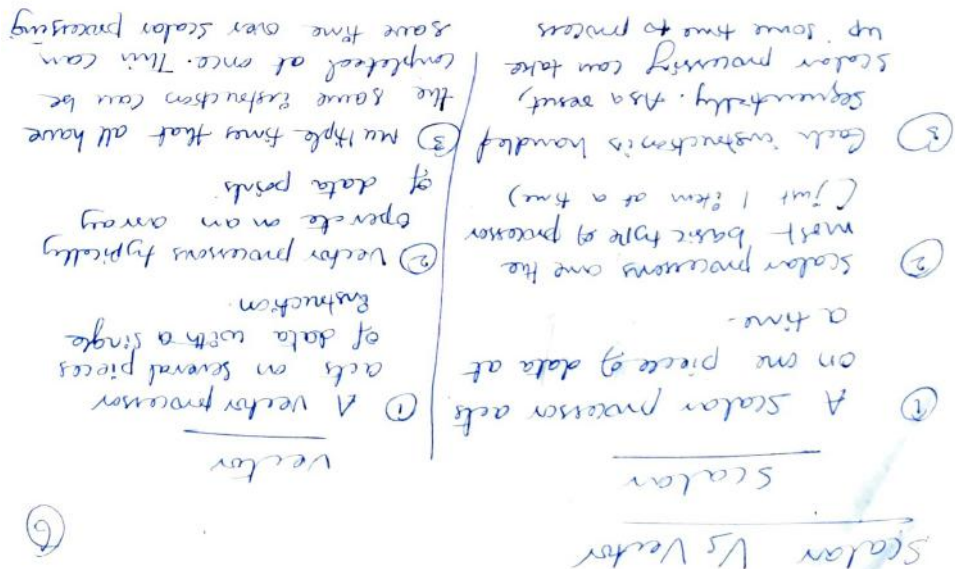 Scalar Vs Vector
6
Scalar
① A Scalar processor acts
on one piece of data at
a time.
② Scalar processors are the
most basic type of processor
(just 1 item at a time)
③ Each instruction is handled
sequentially. As a result,
Scalar processing can take
up some time to process
Vector
① A vector processor
acts on several pieces
of data with a single
instruction.
② Vector processors typically
operate on an array
of data points
③ Multiple times that all have
the same instruction can be
completed at once. This can
save time over scalar processing